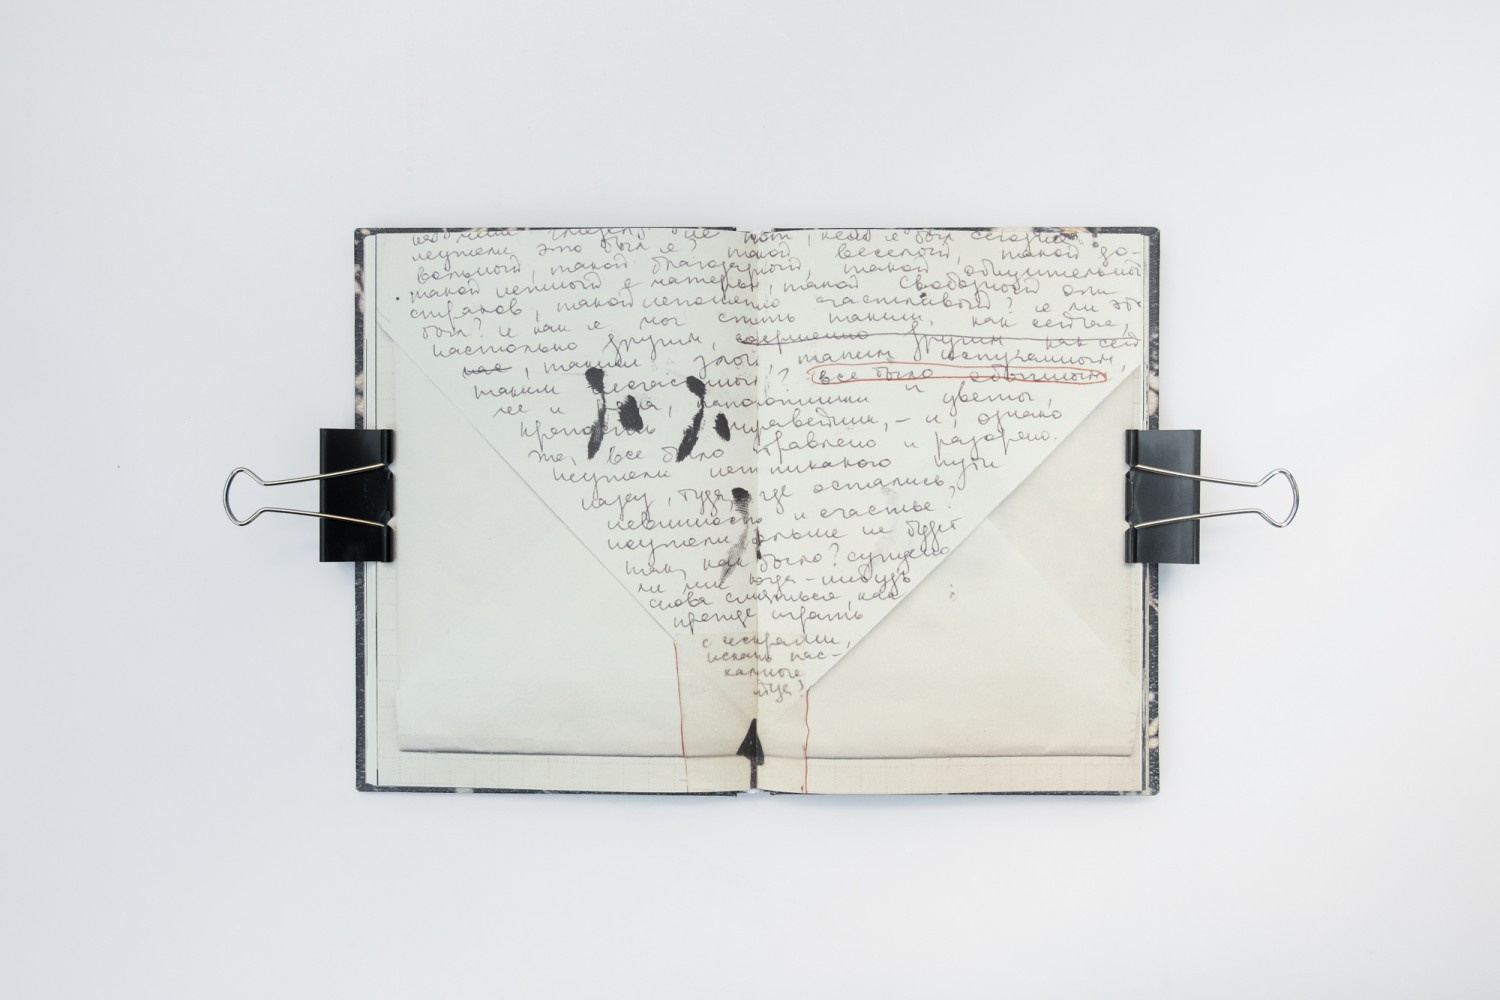 не тот, кем я был сегодня
неужели это был я? такой веселый, такой до-
вольный, такой благодарный, такой общительный
такой нежный с матерью, такой свободный от
страхов, такой непонятно счастливый? и ли это
был? и как я мог стать таким, как сейчас,
настолько другим, совершенно другим как сей
час, таким злым, таким испуганным,
таким несчастным? все было обычным,
лес и река, папоротники и цветы,
крепость муравейник, – и, однако
же, все было отравлено и разорено.
неужели нет никакого пути
назад, туда, где остались
невинность и счастье?
неужели больше не будет
так, как было? суждено
ли мне когда-нибудь
снова смеяться, как
прежде играть
с искрами,
искать пас-
хальные
яйца?